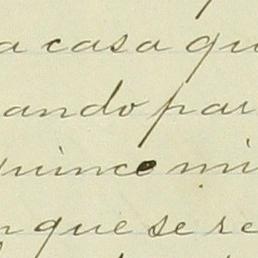 a casa qu
ando par
quince mi
n que se re